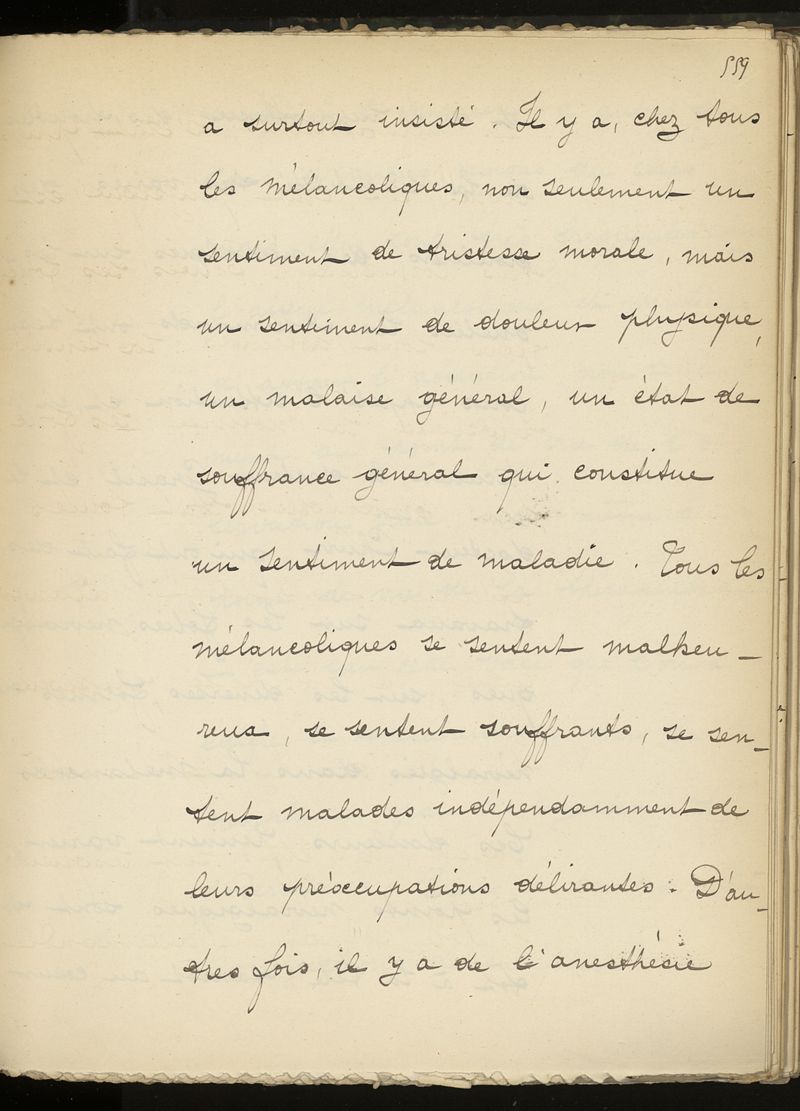 559
a surtout insisté. Il y a, chez tous
les mélancoliques, non seulement un
sentiment de tristesse morale, mais
un sentiment de douleur physique,
un malaise général, un état de
souffrance général qui constitue
un sentiment de maladie. Tous les
mélancoliques se sentent malheu-
reux, se sentent souffrants, se sen-
tent malades indépendamment de
leurs préoccupations délirantes. D'au-
tres fois, il y a de l'anesthésie